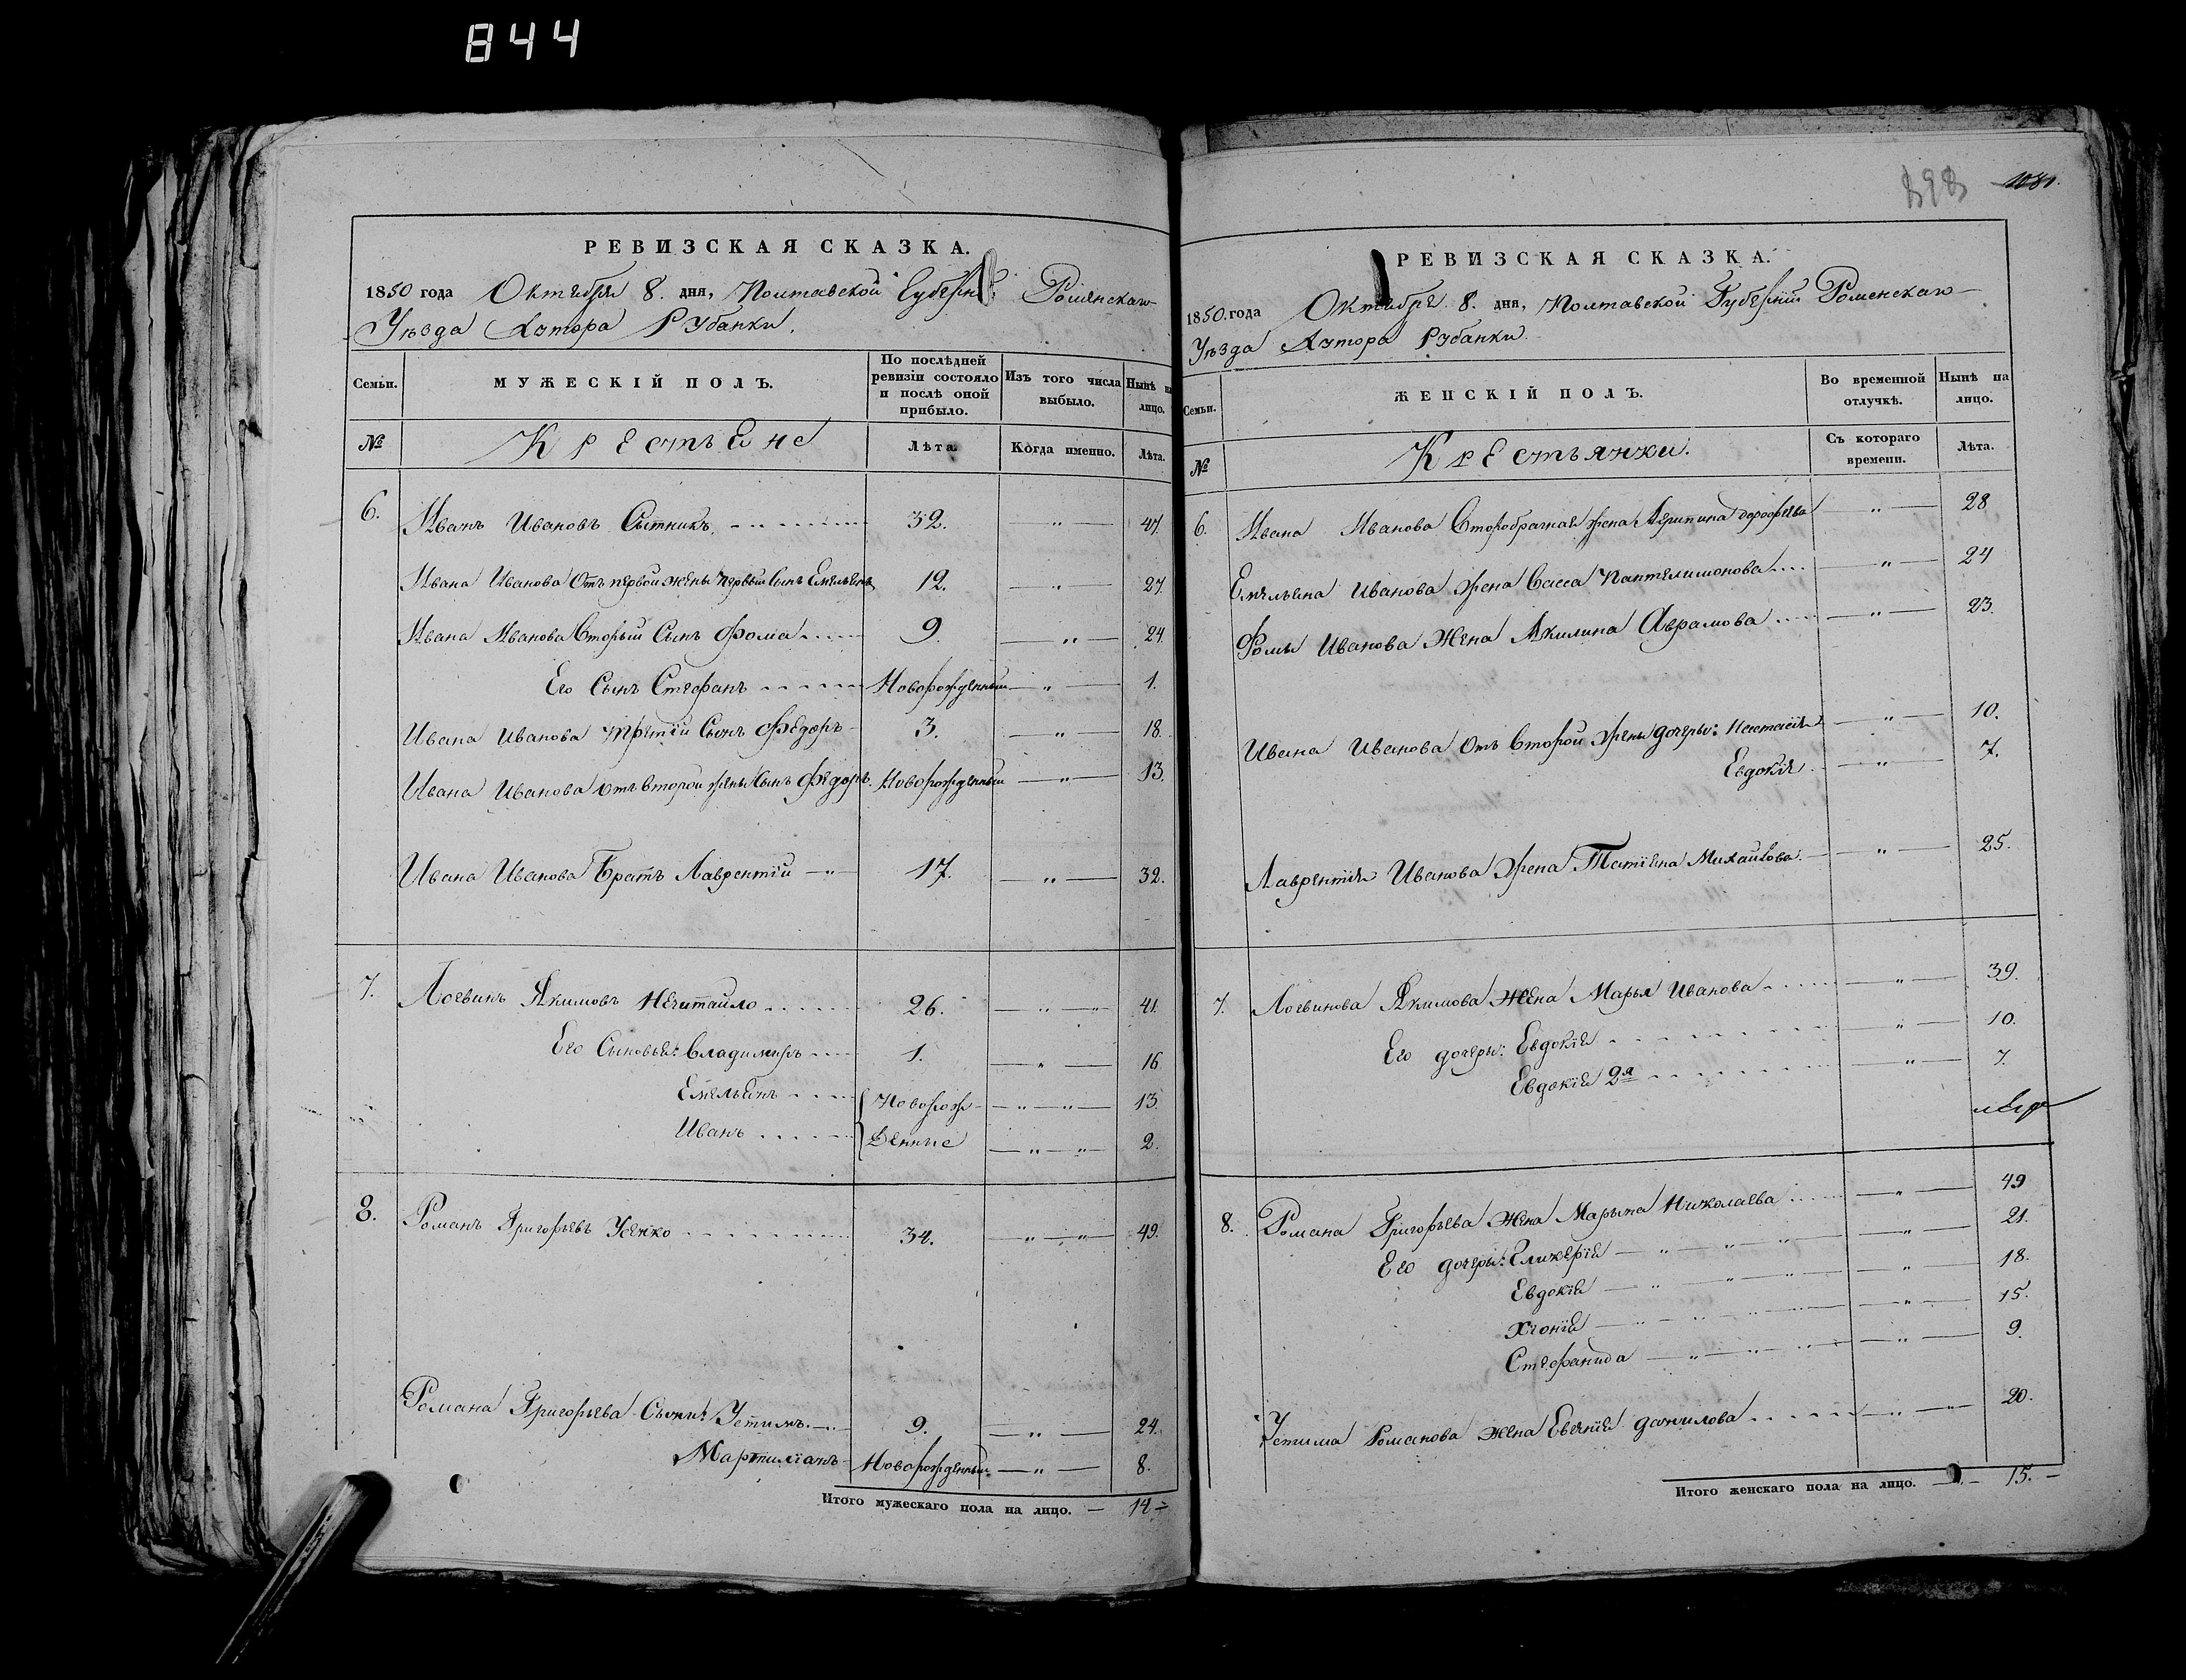 844
1081.
РЕВИЗСКАЯ СКАЗКА.
1850 года Октября 8. дня, Полтавской Губерніи Роменскаго
Уѣзда Хутора Рубанки.
Семьи.
МУЖЕСКІЙ ПОЛЪ.
По послѣдней ревизіи состояло и послѣ оной прибыло.
Изъ того числа выбыло.
Нынѣ на лицо.
№
Крестьяне
Лѣта.
Когда именно.
Лѣта.
6. Иванъ Ивановъ Сытникъ. 32. " 47.
Ивана Иванова Отъ первой жены первый Сынъ Емельянъ 12. " 27.
Ивана Иванова Вторый Сынъ Фома 9. " 24.
Его Сынъ Стефанъ Новорожденный " 1.
Ивана Иванова третій Сынъ Федоръ 3. " 18.
Ивана Иванова отъ Второй жены Сынъ Федоръ. Новорожденный " 13.
Ивана Иванова Братъ Лаврентій 17. " 32.
7. Логвинъ Якимовъ Нечитайло 26. " " 41.
Его Сыновья: Владимиръ 1. " 16
Емельянъ Новорож- " " 13.
Иванъ денные " " 2.
8. Романъ Григорьевъ Усенко 34. " " 49.
Романа Григорьева Сыны: Устимъ. 9. " 24.
Мартиміанъ Новорожденный " 8.
Итого мужескаго пола на лицо. — 14 –
РЕВИЗСКАЯ СКАЗКА.
1850. года Октября 8. дня, Полтавской Губерніи Роменскаго
Уѣзда Хутора Рубанки.
Семьи.
ЖЕНСКІЙ ПОЛЪ.
Во временной отлучкѣ.
Нынѣ на лицо.
№
Крестьянки.
Съ котораго времени.
Лѣта.
6. Ивана Иванова Второбрачная жена Агрипина дорофѣева " 28
Емельяна Иванова жена Васса Пантелимонова " 24
Фомы Иванова Жена Акилина Аврамова " 23.
Ивана Иванова Отъ Второй жены дочеры: Настасія " 10.
Евдокія " 7.
Лаврентія Иванова жена Татіяна Михайлова. " 25.
7. Логвинова Якимова жена Марья Иванова " 39.
Его дочеры: Евдокія " 10.
Евдокія 2я " 7.
8. Романа Григорьева жена Марына Николаева " 49
Его дочеры: Гликерія " 21.
Евдокія " 18.
Хіонія " 15.
Стефанида " 9.
Устима Романова жена Евгенія данилова " " 20.
Итого женскаго пола на лицо. — 15. –